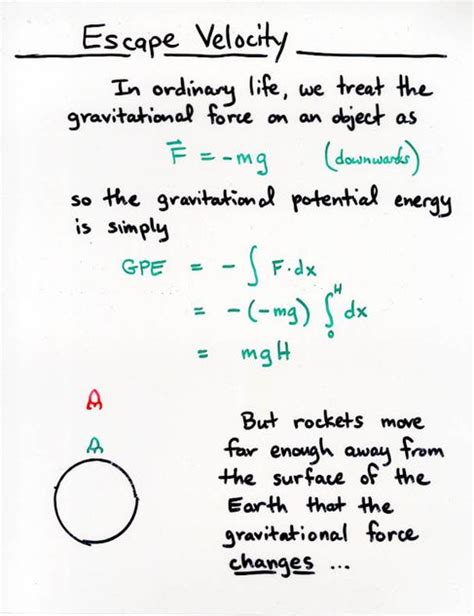 Escape Velocity
In ordinary life, we treat the
gravitational force on an object as
F⃗ = -mg (downwards)
so the gravitational potential energy
is simply
GPE = - ∫ F·dx
= -(-mg) ∫₀ᴴ dx
= mgH
But rockets move
far enough away from
the surface of the
Earth that the
gravitational force
changes ...